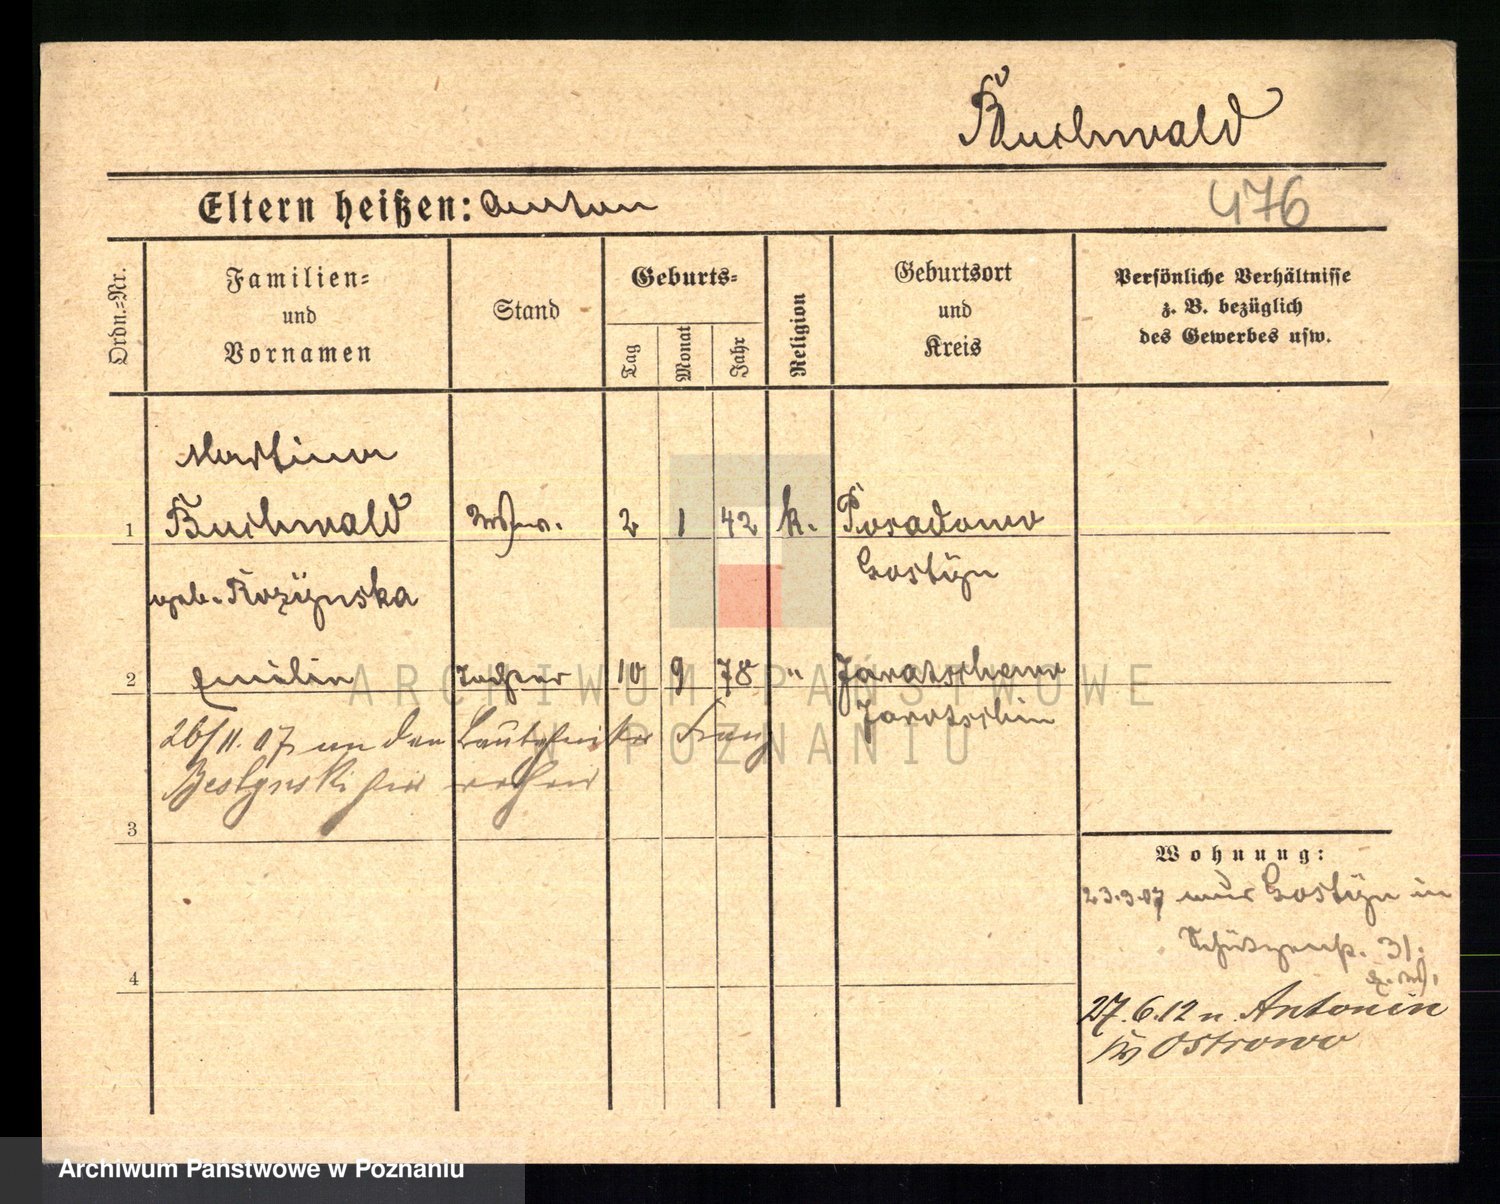 Buchwald
Eltern heißen: Anton
476
Ordn.-Nr.
Familien-
und
Vornamen
Stand
Geburts-
Tag
Monat
Jahr
Religion
Geburtsort
und
Kreis
Persönliche Verhältnisse
z. B. bezüglich
des Gewerbes usw.
Martina
1 Buchwald 2 1 42 k. Posadowo
geb. Rozÿnska Gostÿn
2 Emilie Tochter 10 9 78 " Jaratschewo
Jarotschin
26/11.07 an den Franz
3
4
Wohnung:
23.3.07 aus Gostÿn in
Schützenstr. 31.
27.6.12 n. Antonin
Ostrowo
ARCHIWUM PAŃSTWOWE
W POZNANIU
Archiwum Państwowe w Poznaniu